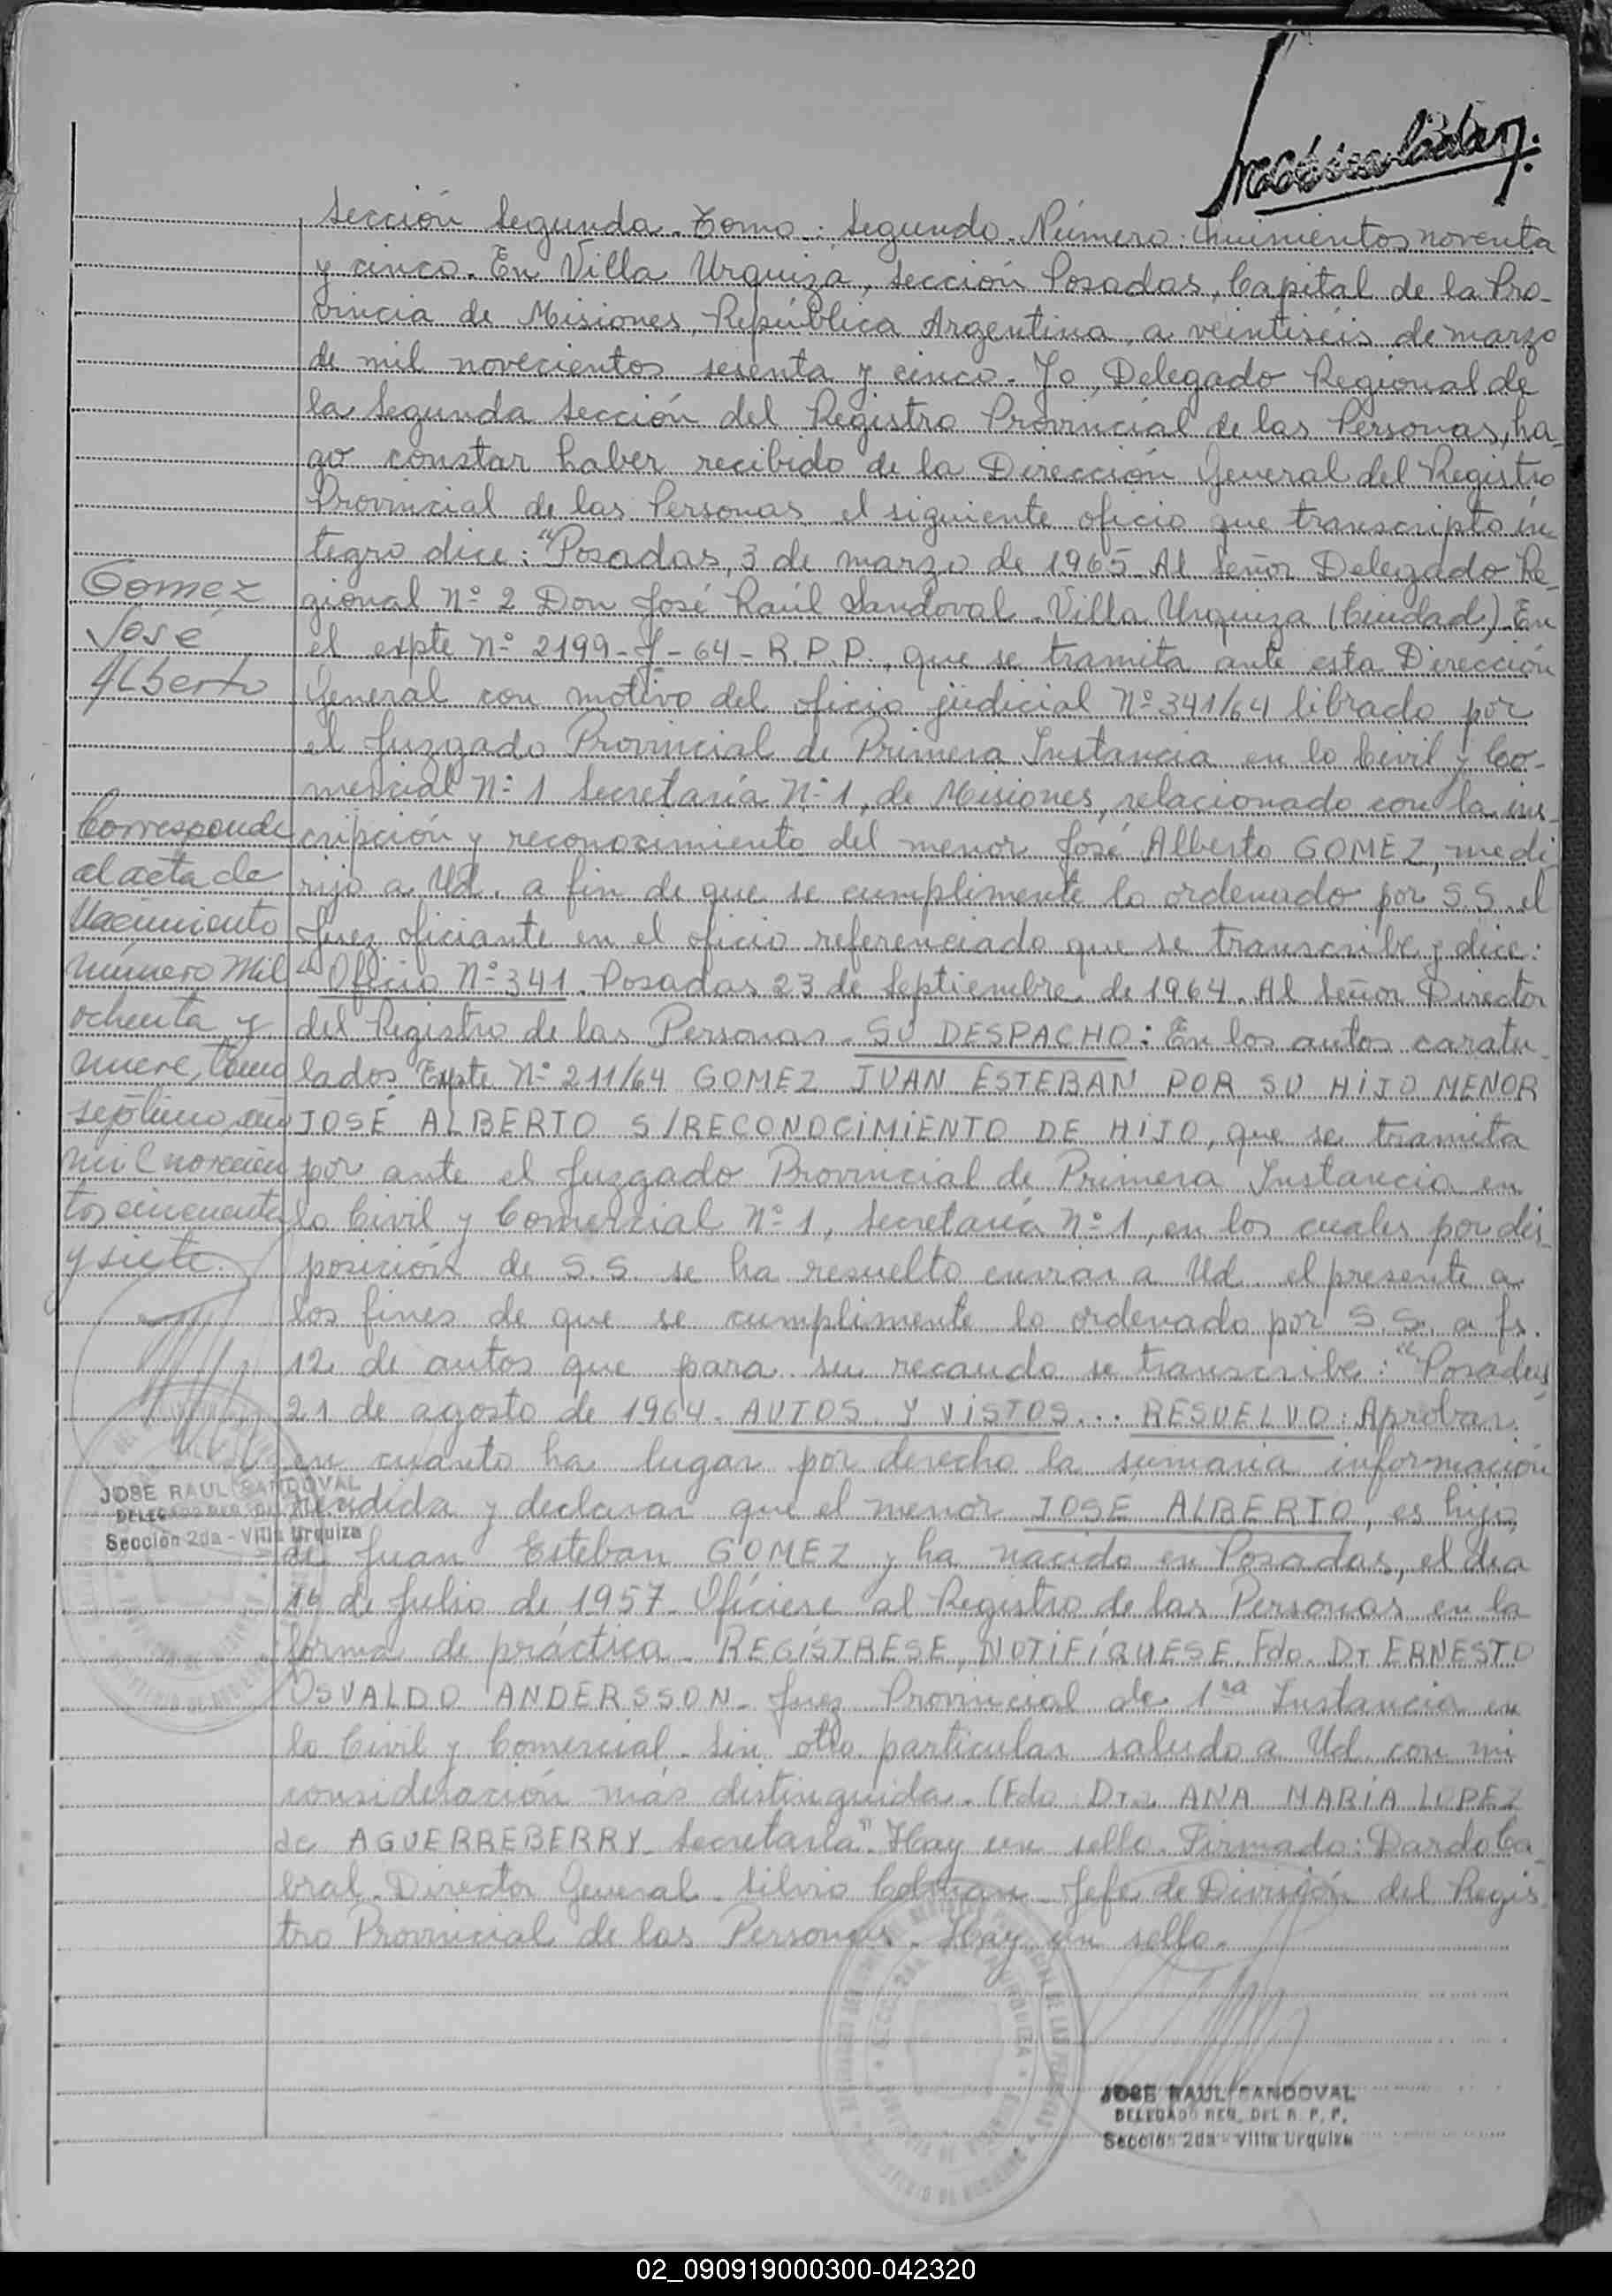 Matriculado
Sección Segunda. Tomo: Segundo. Número: Quinientos noventa
y cinco. En Villa Urquiza, Sección Posadas, Capital de la Pro-
vincia de Misiones, República Argentina, a veintiséis de marzo
de mil novecientos sesenta y cinco. Yo, Delegado Regional de
la Segunda Sección del Registro Provincial de las Personas, ha-
go constar haber recibido de la Dirección General del Registro
Provincial de las Personas el siguiente oficio que transcripto ín-
tegro dice: "Posadas, 3 de marzo de 1965. Al Señor Delegado Re-
gional Nº 2 Don José Raúl Sandoval. Villa Urquiza (Ciudad). En
el expte Nº 2199-J-64-R.P.P., que se tramita ante esta Dirección
General con motivo del oficio judicial Nº 341/64 librado por
el Juzgado Provincial de Primera Instancia en lo Civil y Co-
mercial Nº 1 Secretaría Nº 1, de Misiones, relacionado con la ins-
cripción y reconocimiento del menor José Alberto GOMEZ, me di-
rijo a Ud. a fin de que se cumplimente lo ordenado por S.S. el
Juez oficiante en el oficio referenciado que se transcribe y dice:
"Oficio Nº 341. Posadas 23 de Septiembre de 1964. Al Señor Director
del Registro de las Personas. SU DESPACHO: En los autos caratu-
lados Expte Nº 211/64 GOMEZ JUAN ESTEBAN POR SU HIJO MENOR
JOSÉ ALBERTO S/RECONOCIMIENTO DE HIJO, que se tramita
por ante el Juzgado Provincial de Primera Instancia en
lo Civil y Comercial Nº 1, Secretaría Nº 1, en los cuales por dis-
posición de S.S. se ha resuelto enviar a Ud. el presente a
los fines de que se cumplimente lo ordenado por S.S. a fs.
12 de autos que para su recaudo se transcribe: "Posadas,
21 de agosto de 1964. AUTOS Y VISTOS... RESUELVO: Aprobar
en cuanto ha lugar por derecho la sumaria información
rendida y declarar que el menor JOSE ALBERTO, es hijo
de Juan Esteban GOMEZ y ha nacido en Posadas, el día
16 de Julio de 1957. Ofíciese al Registro de las Personas en la
forma de práctica. REGÍSTRESE, NOTIFÍQUESE. Fdo. Dr ERNESTO
OSVALDO ANDERSSON. Juez Provincial de 1ra Instancia en
lo Civil y Comercial. Sin otro particular saludo a Ud. con mi
consideración más distinguida. (Fdo Dra ANA MARÍA LOPEZ
de AGUERREBERRY. Secretaria". Hay un sello. Firmado: Dardo Ca-
bral. Director General. Silvio Colman. Jefe de División del Regis-
tro Provincial de las Personas. Hay un sello.
Gomez
José
Alberto
Corresponde
al acta de
Nacimiento
número Mil
ochenta y
nueve, tomo
séptimo, año
mil novecien
tos cincuenta
y siete.
JOSE RAUL SANDOVAL
DELEGADO REG. DEL R. P. P.
Sección 2da - Villa Urquiza
JOSE RAUL SANDOVAL
DELEGADO REG. DEL R. P. P.
Sección 2da - Villa Urquiza
02_090919000300-042320